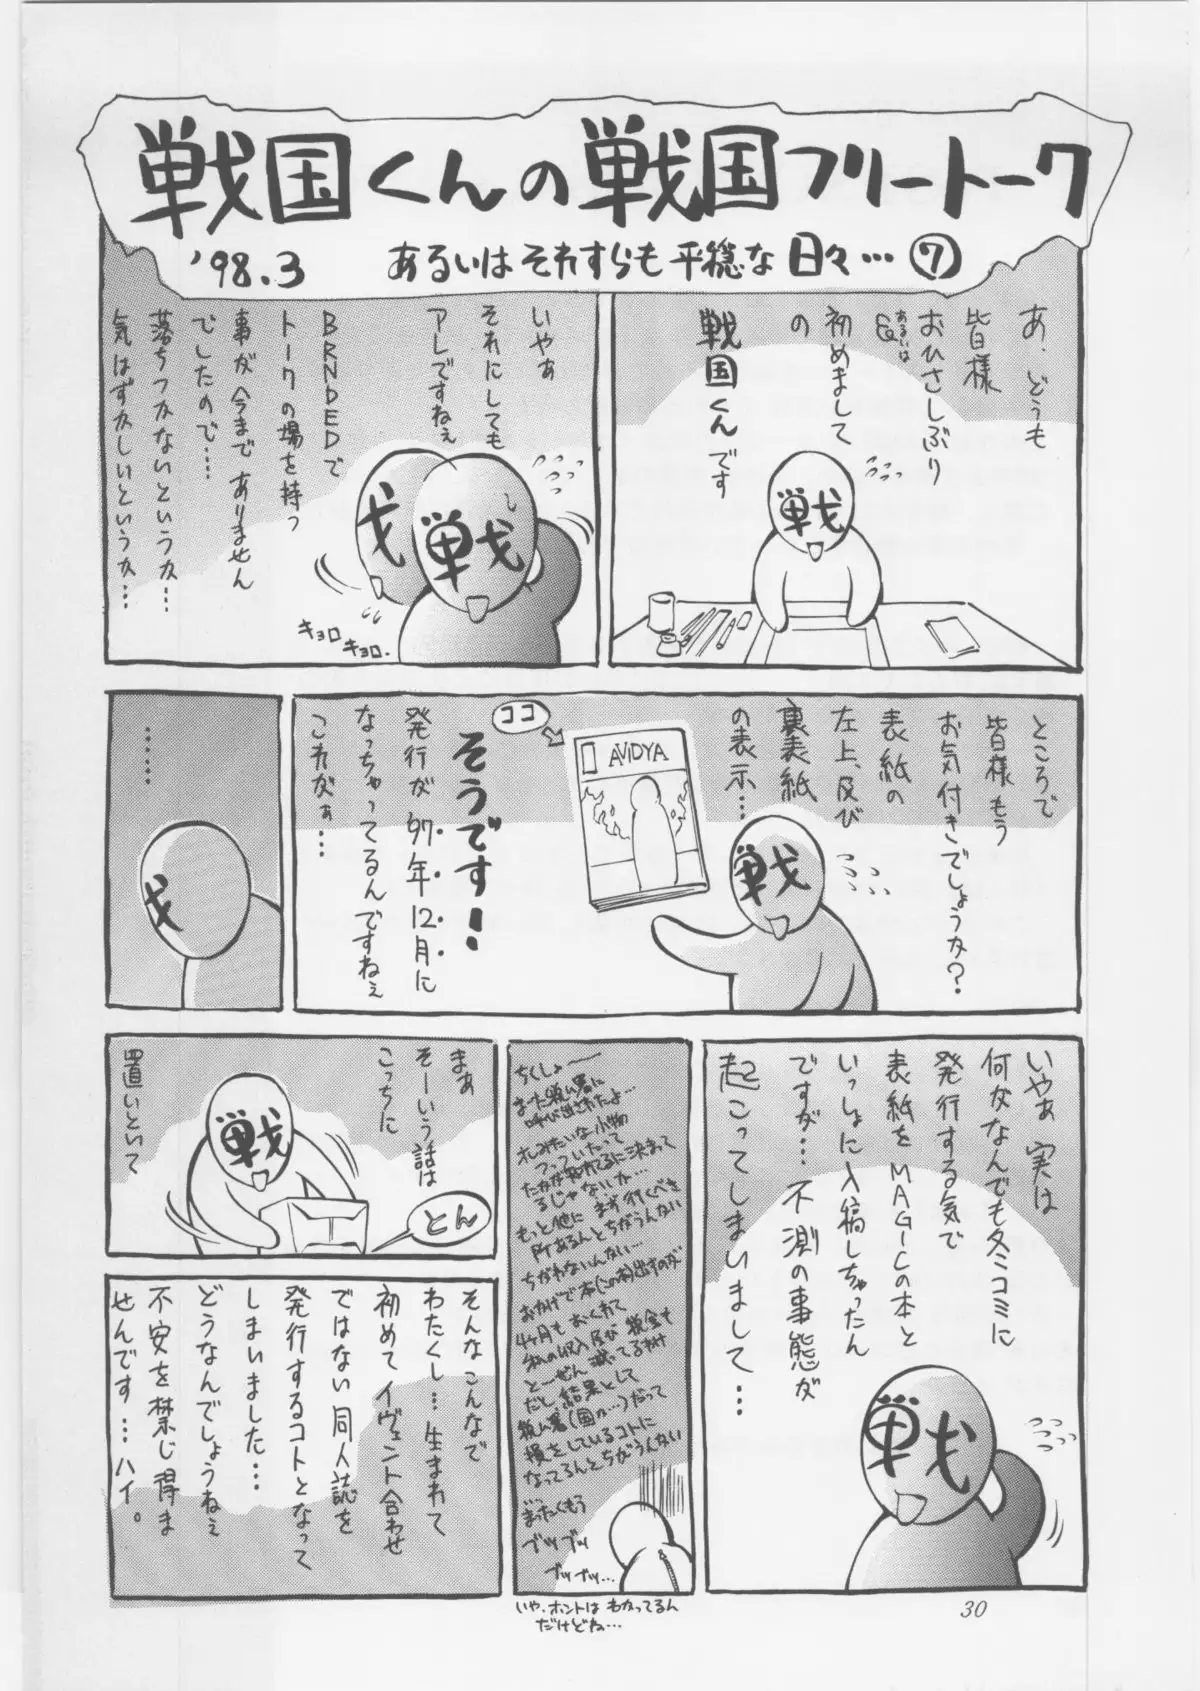 戦国くんの戦国フリートーク
'98.3
あるいはそれすらも平穏な日々…⑦
あ、どうも
皆様
おひさしぶり
あるいは
&
初めまして
の
戦国くんです
戦
いやぁ
それにしても
アレですねぇ
BRNDEDで
トークの場を持つ
事が今までありません
でしたので……
落ちつかないというか…
気はずかしいというか…
戦
キョロ
キョロ.
ところで
皆様もう
お気付きでしょうか?
表紙の
左上、及び
裏表紙
の表示…
ココ
AVIDYA
戦
そうです!
発行が'97年12月に
なっちゃってるんですねぇ
これがぁ…
……
いやぁ 実は
何がなんでも冬コミに
発行する気で
表紙をMAGICの本と
いっしょに入稿しちゃったん
ですが…不測の事態が
起こってしまいまして…
戦
ちくしょー
また税ム署に
呼び出されたよ…
オレみたいな小物
つっついたって
たかが知れてるに決まって
るじゃないか…
もっと他に まず行くべき
所あるんとちがうんかい
ちがわないんかい…
おかげで本(この本)出すのが
4ヶ月もおくれて
私の収入及び税金も
とーぜん減ってるわけ
だし、結果として
税ム署(国か…)だって
損をしているコトに
なってるんとちがうんかい
まったくもう
ブツブツ
ブツブツ…
いや、ホントはわかってるん
だけどね…
まぁ
そーいう話は
こっちに
置いといて
戦
とん
そんなこんなで
わたくし…生まれて
初めてイヴェント合わせ
ではない同人誌を
発行するコトとなって
しまいました…
どうなんでしょうねぇ
不安を禁じ得ま
せんです…ハイ。
30